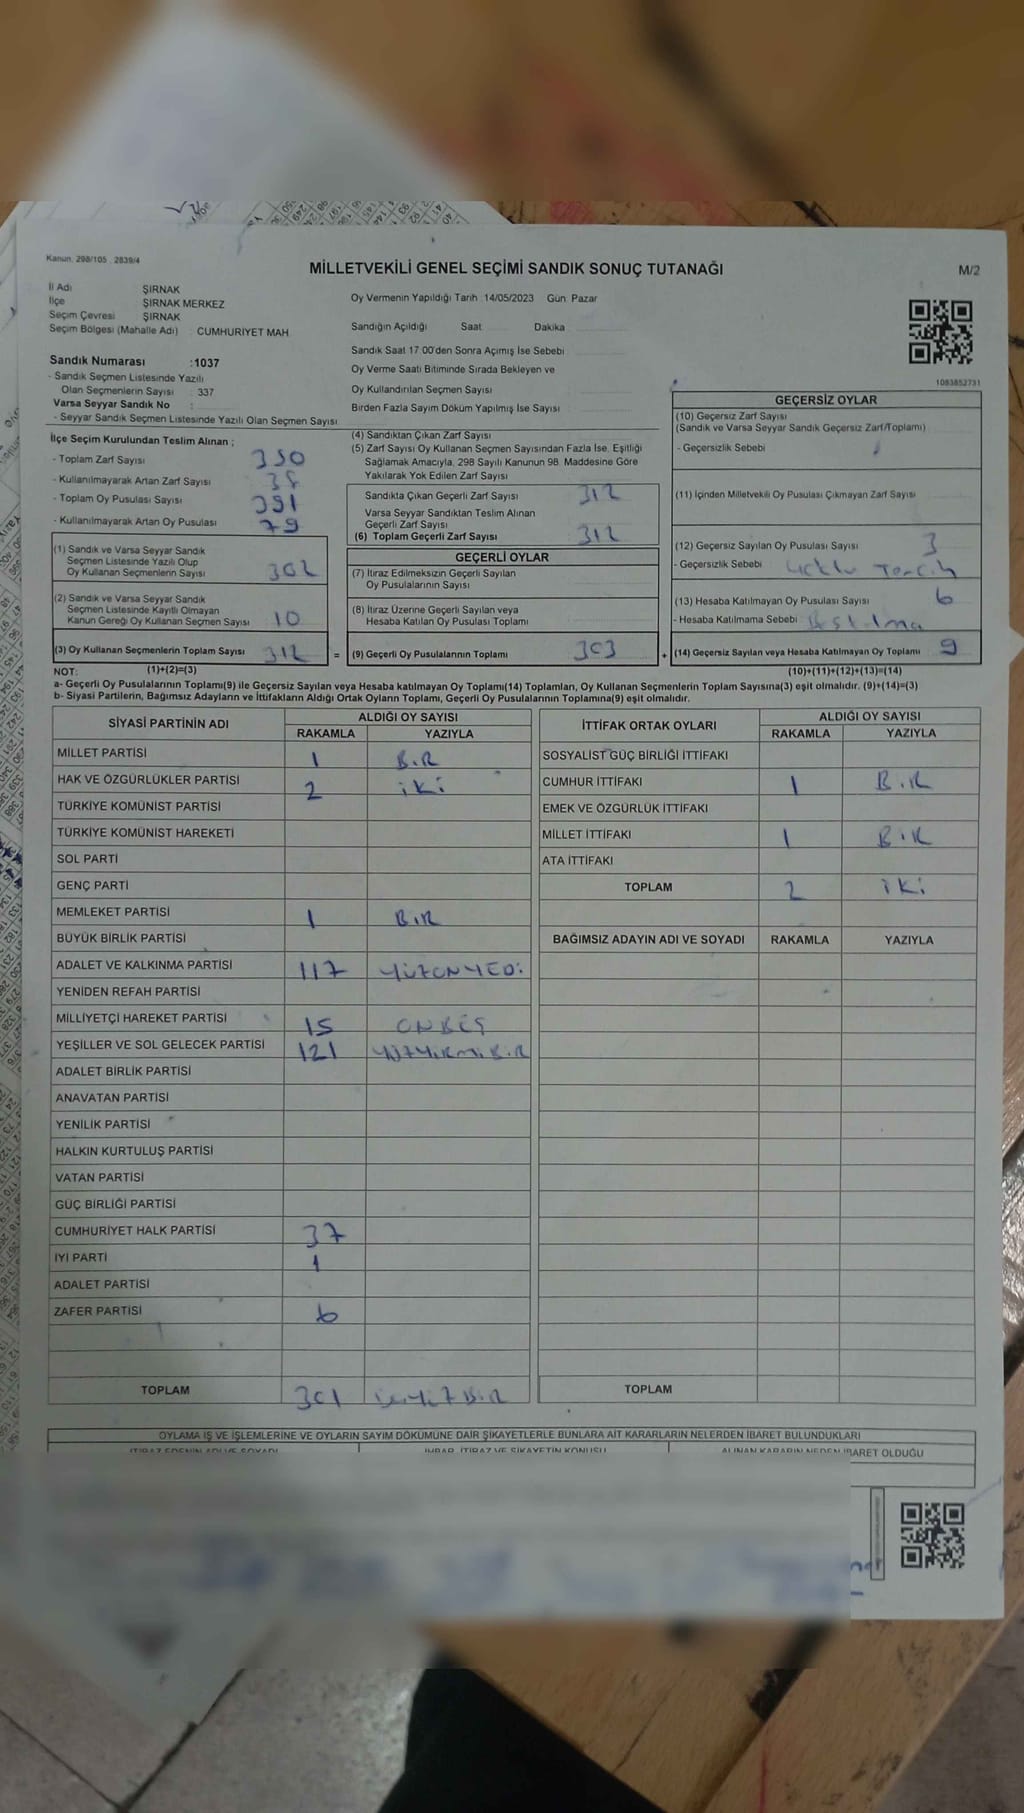 Kanun. 298/105 . 2839/4
MİLLETVEKİLİ GENEL SEÇİMİ SANDIK SONUÇ TUTANAĞI
M/2
İl Adı ŞIRNAK
İlçe ŞIRNAK MERKEZ
Seçim Çevresi ŞIRNAK
Seçim Bölgesi (Mahalle Adı) : CUMHURİYET MAH.
Oy Vermenin Yapıldığı Tarih :14/05/2023 Gün: Pazar
Sandığın Açıldığı Saat Dakika
Sandık Saat 17:00'den Sonra Açımış İse Sebebi
Oy Verme Saati Bitiminde Sırada Bekleyen ve
Oy Kullandırılan Seçmen Sayısı
Birden Fazla Sayım Döküm Yapılmış İse Sayısı
Sandık Numarası :1037
- Sandık Seçmen Listesinde Yazılı
Olan Seçmenlerin Sayısı : 337
Varsa Seyyar Sandık No :
- Seyyar Sandık Seçmen Listesinde Yazılı Olan Seçmen Sayısı
1083852731
İlçe Seçim Kurulundan Teslim Alınan ;
- Toplam Zarf Sayısı 350
- Kullanılmayarak Artan Zarf Sayısı 38
- Toplam Oy Pusulası Sayısı 391
- Kullanılmayarak Artan Oy Pusulası 79
(1) Sandık ve Varsa Seyyar Sandık
Seçmen Listesinde Yazılı Olup
Oy Kullanan Seçmenlerin Sayısı 302
(2) Sandık ve Varsa Seyyar Sandık
Seçmen Listesinde Kayıtlı Olmayan
Kanun Gereği Oy Kullanan Seçmen Sayısı 10
(3) Oy Kullanan Seçmenlerin Toplam Sayısı 312 =
(4) Sandıktan Çıkan Zarf Sayısı
(5) Zarf Sayısı Oy Kullanan Seçmen Sayısından Fazla İse, Eşitliği
Sağlamak Amacıyla, 298 Sayılı Kanunun 98. Maddesine Göre
Yakılarak Yok Edilen Zarf Sayısı
Sandıkta Çıkan Geçerli Zarf Sayısı 312
Varsa Seyyar Sandıktan Teslim Alınan
Geçerli Zarf Sayısı
(6) Toplam Geçerli Zarf Sayısı 312
GEÇERLİ OYLAR
(7) İtiraz Edilmeksizin Geçerli Sayılan
Oy Pusulalarının Sayısı
(8) İtiraz Üzerine Geçerli Sayılan veya
Hesaba Katılan Oy Pusulası Toplamı
(9) Geçerli Oy Pusulalarının Toplamı 303 +
GEÇERSİZ OYLAR
(10) Geçersiz Zarf Sayısı
(Sandık ve Varsa Seyyar Sandık Geçersiz Zarf/Toplamı)
- Geçersizlik Sebebi
(11) İçinden Milletvekili Oy Pusulası Çıkmayan Zarf Sayısı
(12) Geçersiz Sayılan Oy Pusulası Sayısı 3
- Geçersizlik Sebebi Tercih
(13) Hesaba Katılmayan Oy Pusulası Sayısı 6
- Hesaba Katılmama Sebebi
(14) Geçersiz Sayılan veya Hesaba Katılmayan Oy Toplamı 9
NOT: (1)+(2)=(3) (10)+(11)+(12)+(13)=(14)
a- Geçerli Oy Pusulalarının Toplamı(9) ile Geçersiz Sayılan veya Hesaba katılmayan Oy Toplamı(14) Toplamları, Oy Kullanan Seçmenlerin Toplam Sayısına(3) eşit olmalıdır. (9)+(14)=(3)
b- Siyasi Partilerin, Bağımsız Adayların ve İttifakların Aldığı Ortak Oyların Toplamı, Geçerli Oy Pusulalarının Toplamına(9) eşit olmalıdır.
SİYASİ PARTİNİN ADI ALDIĞI OY SAYISI
RAKAMLA YAZIYLA
MİLLET PARTİSİ 1 BİR
HAK VE ÖZGÜRLÜKLER PARTİSİ 2 iKi
TÜRKİYE KOMÜNİST PARTİSİ
TÜRKİYE KOMÜNİST HAREKETİ
SOL PARTİ
GENÇ PARTİ
MEMLEKET PARTİSİ 1 BİR
BÜYÜK BİRLİK PARTİSİ
ADALET VE KALKINMA PARTİSİ 117 YÜZONYEDİ
YENİDEN REFAH PARTİSİ
MİLLİYETÇİ HAREKET PARTİSİ 15 ONBEŞ
YEŞİLLER VE SOL GELECEK PARTİSİ 121 YÜZYİRMİBİR
ADALET BİRLİK PARTİSİ
ANAVATAN PARTİSİ
YENİLİK PARTİSİ
HALKIN KURTULUŞ PARTİSİ
VATAN PARTİSİ
GÜÇ BİRLİĞİ PARTİSİ
CUMHURİYET HALK PARTİSİ 37
İYİ PARTİ 1
ADALET PARTİSİ
ZAFER PARTİSİ 6
TOPLAM 301
İTTİFAK ORTAK OYLARI ALDIĞI OY SAYISI
RAKAMLA YAZIYLA
SOSYALİST GÜÇ BİRLİĞİ İTTİFAKI
CUMHUR İTTİFAKI 1 BİR
EMEK VE ÖZGÜRLÜK İTTİFAKI
MİLLET İTTİFAKI 1 BİR
ATA İTTİFAKI
TOPLAM 2 iKi
BAĞIMSIZ ADAYIN ADI VE SOYADI RAKAMLA YAZIYLA
TOPLAM
OYLAMA İŞ VE İŞLEMLERİNE VE OYLARIN SAYIM DÖKÜMÜNE DAİR ŞİKAYETLERLE BUNLARA AİT KARARLARIN NELERDEN İBARET BULUNDUKLARI
İTİRAZ EDENİN ADI VE SOYADI İHBAR, İTİRAZ VE ŞİKAYETİN KONUSU ALINAN KARARIN NEDEN İBARET OLDUĞU